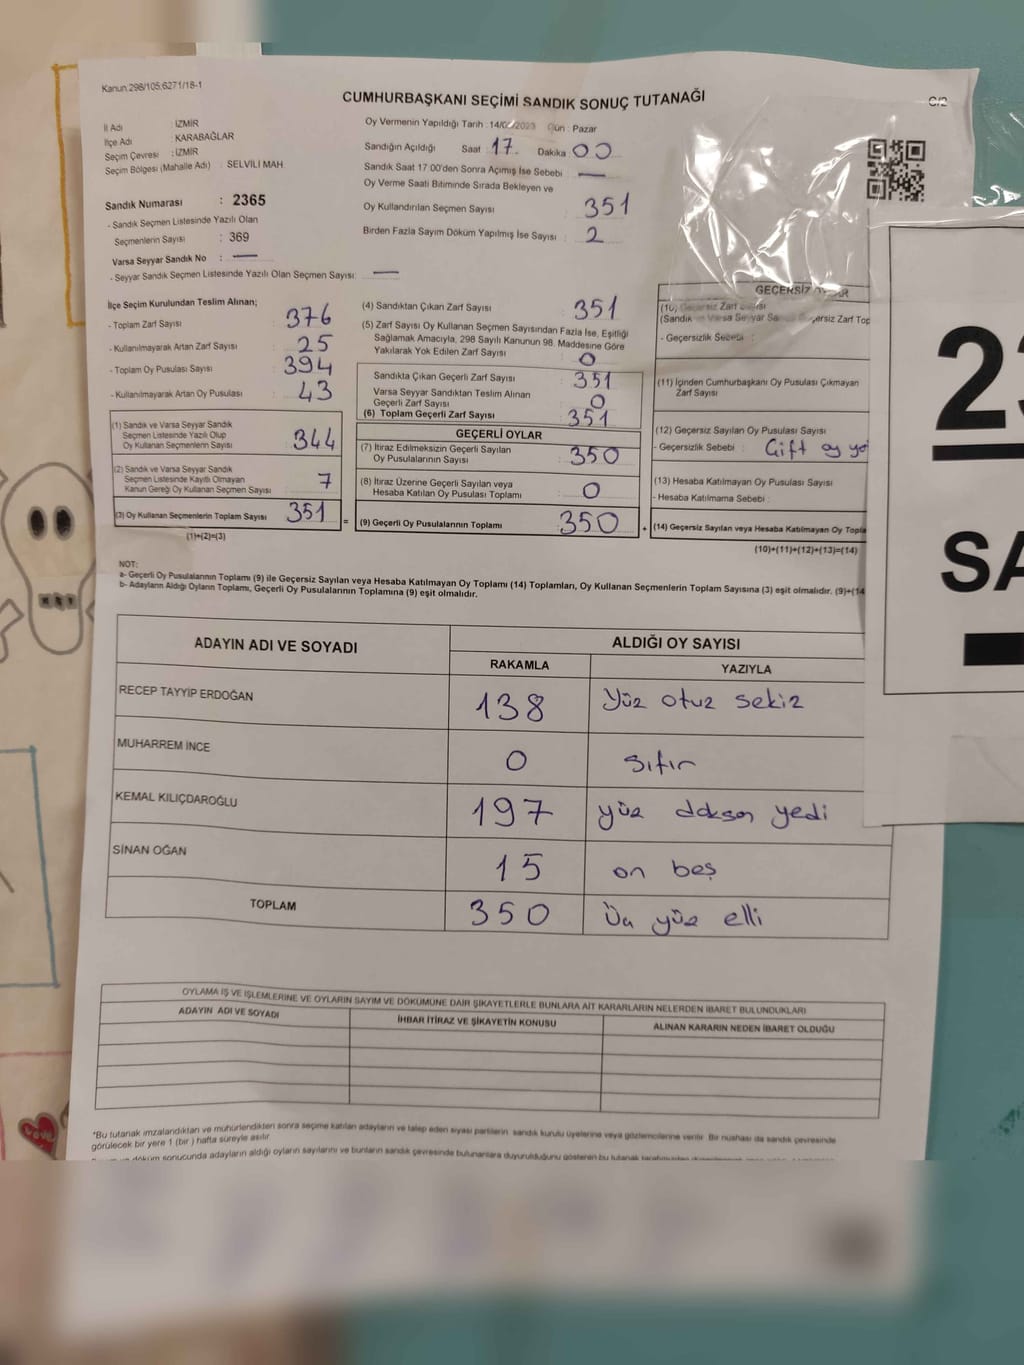 Kanun:298/105,6271/18-1
C/2
CUMHURBAŞKANI SEÇİMİ SANDIK SONUÇ TUTANAĞI
İl Adı : İZMİR
İlçe Adı : KARABAĞLAR
Seçim Çevresi : İZMİR
Seçim Bölgesi (Mahalle Adı) : SELVİLİ MAH.
Sandık Numarası : 2365
- Sandık Seçmen Listesinde Yazılı Olan
Seçmenlerin Sayısı : 369
Varsa Seyyar Sandık No : —
- Seyyar Sandık Seçmen Listesinde Yazılı Olan Seçmen Sayısı: —
Oy Vermenin Yapıldığı Tarih : 14/ /2023 Gün : Pazar
Sandığın Açıldığı Saat 17 Dakika 00
Sandık Saat 17:00'den Sonra Açımış İse Sebebi : —
Oy Verme Saati Bitiminde Sırada Bekleyen ve
Oy Kullandırılan Seçmen Sayısı : 351
Birden Fazla Sayım Döküm Yapılmış İse Sayısı : 2
İlçe Seçim Kurulundan Teslim Alınan;
- Toplam Zarf Sayısı : 376
- Kullanılmayarak Artan Zarf Sayısı : 25
- Toplam Oy Pusulası Sayısı : 394
- Kullanılmayarak Artan Oy Pusulası : 43
(1) Sandık ve Varsa Seyyar Sandık
Seçmen Listesinde Yazılı Olup
Oy Kullanan Seçmenlerin Sayısı : 344
(2) Sandık ve Varsa Seyyar Sandık
Seçmen Listesinde Kayıtlı Olmayan
Kanun Gereği Oy Kullanan Seçmen Sayısı : 7
(3) Oy Kullanan Seçmenlerin Toplam Sayısı : 351
(1)+(2)=(3)
(4) Sandıktan Çıkan Zarf Sayısı : 351
(5) Zarf Sayısı Oy Kullanan Seçmen Sayısından Fazla İse, Eşitliği
Sağlamak Amacıyla, 298 Sayılı Kanunun 98. Maddesine Göre
Yakılarak Yok Edilen Zarf Sayısı : 0
Sandıkta Çıkan Geçerli Zarf Sayısı : 351
Varsa Seyyar Sandıktan Teslim Alınan
Geçerli Zarf Sayısı : 0
(6) Toplam Geçerli Zarf Sayısı : 351
GEÇERLİ OYLAR
(7) İtiraz Edilmeksizin Geçerli Sayılan
Oy Pusulalarının Sayısı : 350
(8) İtiraz Üzerine Geçerli Sayılan veya
Hesaba Katılan Oy Pusulası Toplamı : 0
=
(9) Geçerli Oy Pusulalarının Toplamı : 350
+
GEÇERSİZ
(10) Geçersiz Zarf Sayısı
(Sandık ve Varsa Seyyar Zarf Top
- Geçersizlik Sebebi :
(11) İçinden Cumhurbaşkanı Oy Pusulası Çıkmayan
Zarf Sayısı
(12) Geçersiz Sayılan Oy Pusulası Sayısı
- Geçersizlik Sebebi : Çift oy
(13) Hesaba Katılmayan Oy Pusulası Sayısı
- Hesaba Katılmama Sebebi :
(14) Geçersiz Sayılan veya Hesaba Katılmayan Oy Topla
(10)+(11)+(12)+(13)=(14)
NOT:
a- Geçerli Oy Pusulalarının Toplamı (9) ile Geçersiz Sayılan veya Hesaba Katılmayan Oy Toplamı (14) Toplamları, Oy Kullanan Seçmenlerin Toplam Sayısına (3) eşit olmalıdır. (9)+(14
b- Adayların Aldığı Oyların Toplamı, Geçerli Oy Pusulalarının Toplamına (9) eşit olmalıdır.
ADAYIN ADI VE SOYADI
ALDIĞI OY SAYISI
RAKAMLA YAZIYLA
RECEP TAYYİP ERDOĞAN 138 Yüz otuz sekiz
MUHARREM İNCE 0 sıfır
KEMAL KILIÇDAROĞLU 197 yüz doksan yedi
SİNAN OĞAN 15 on beş
TOPLAM 350 Üç yüz elli
OYLAMA İŞ VE İŞLEMLERİNE VE OYLARIN SAYIM VE DÖKÜMÜNE DAİR ŞİKAYETLERLE BUNLARA AİT KARARLARIN NELERDEN İBARET BULUNDUKLARI
ADAYIN ADI VE SOYADI İHBAR İTİRAZ VE ŞİKAYETİN KONUSU ALINAN KARARIN NEDEN İBARET OLDUĞU
*Bu tutanak imzalandıktan ve mühürlendikten sonra seçime katılan adayların ve talep eden siyasi partilerin sandık kurulu üyelerine veya gözlemcilerine verilir. Bir nüshası da sandık çevresinde
görülecek bir yere 1 (bir ) hafta süreyle asılır.
döküm sonucunda adayların aldığı oyların sayılarını ve bunların sandık çevresinde bulunanlara duyurulduğunu gösteren bu tutanak
23
SA
love